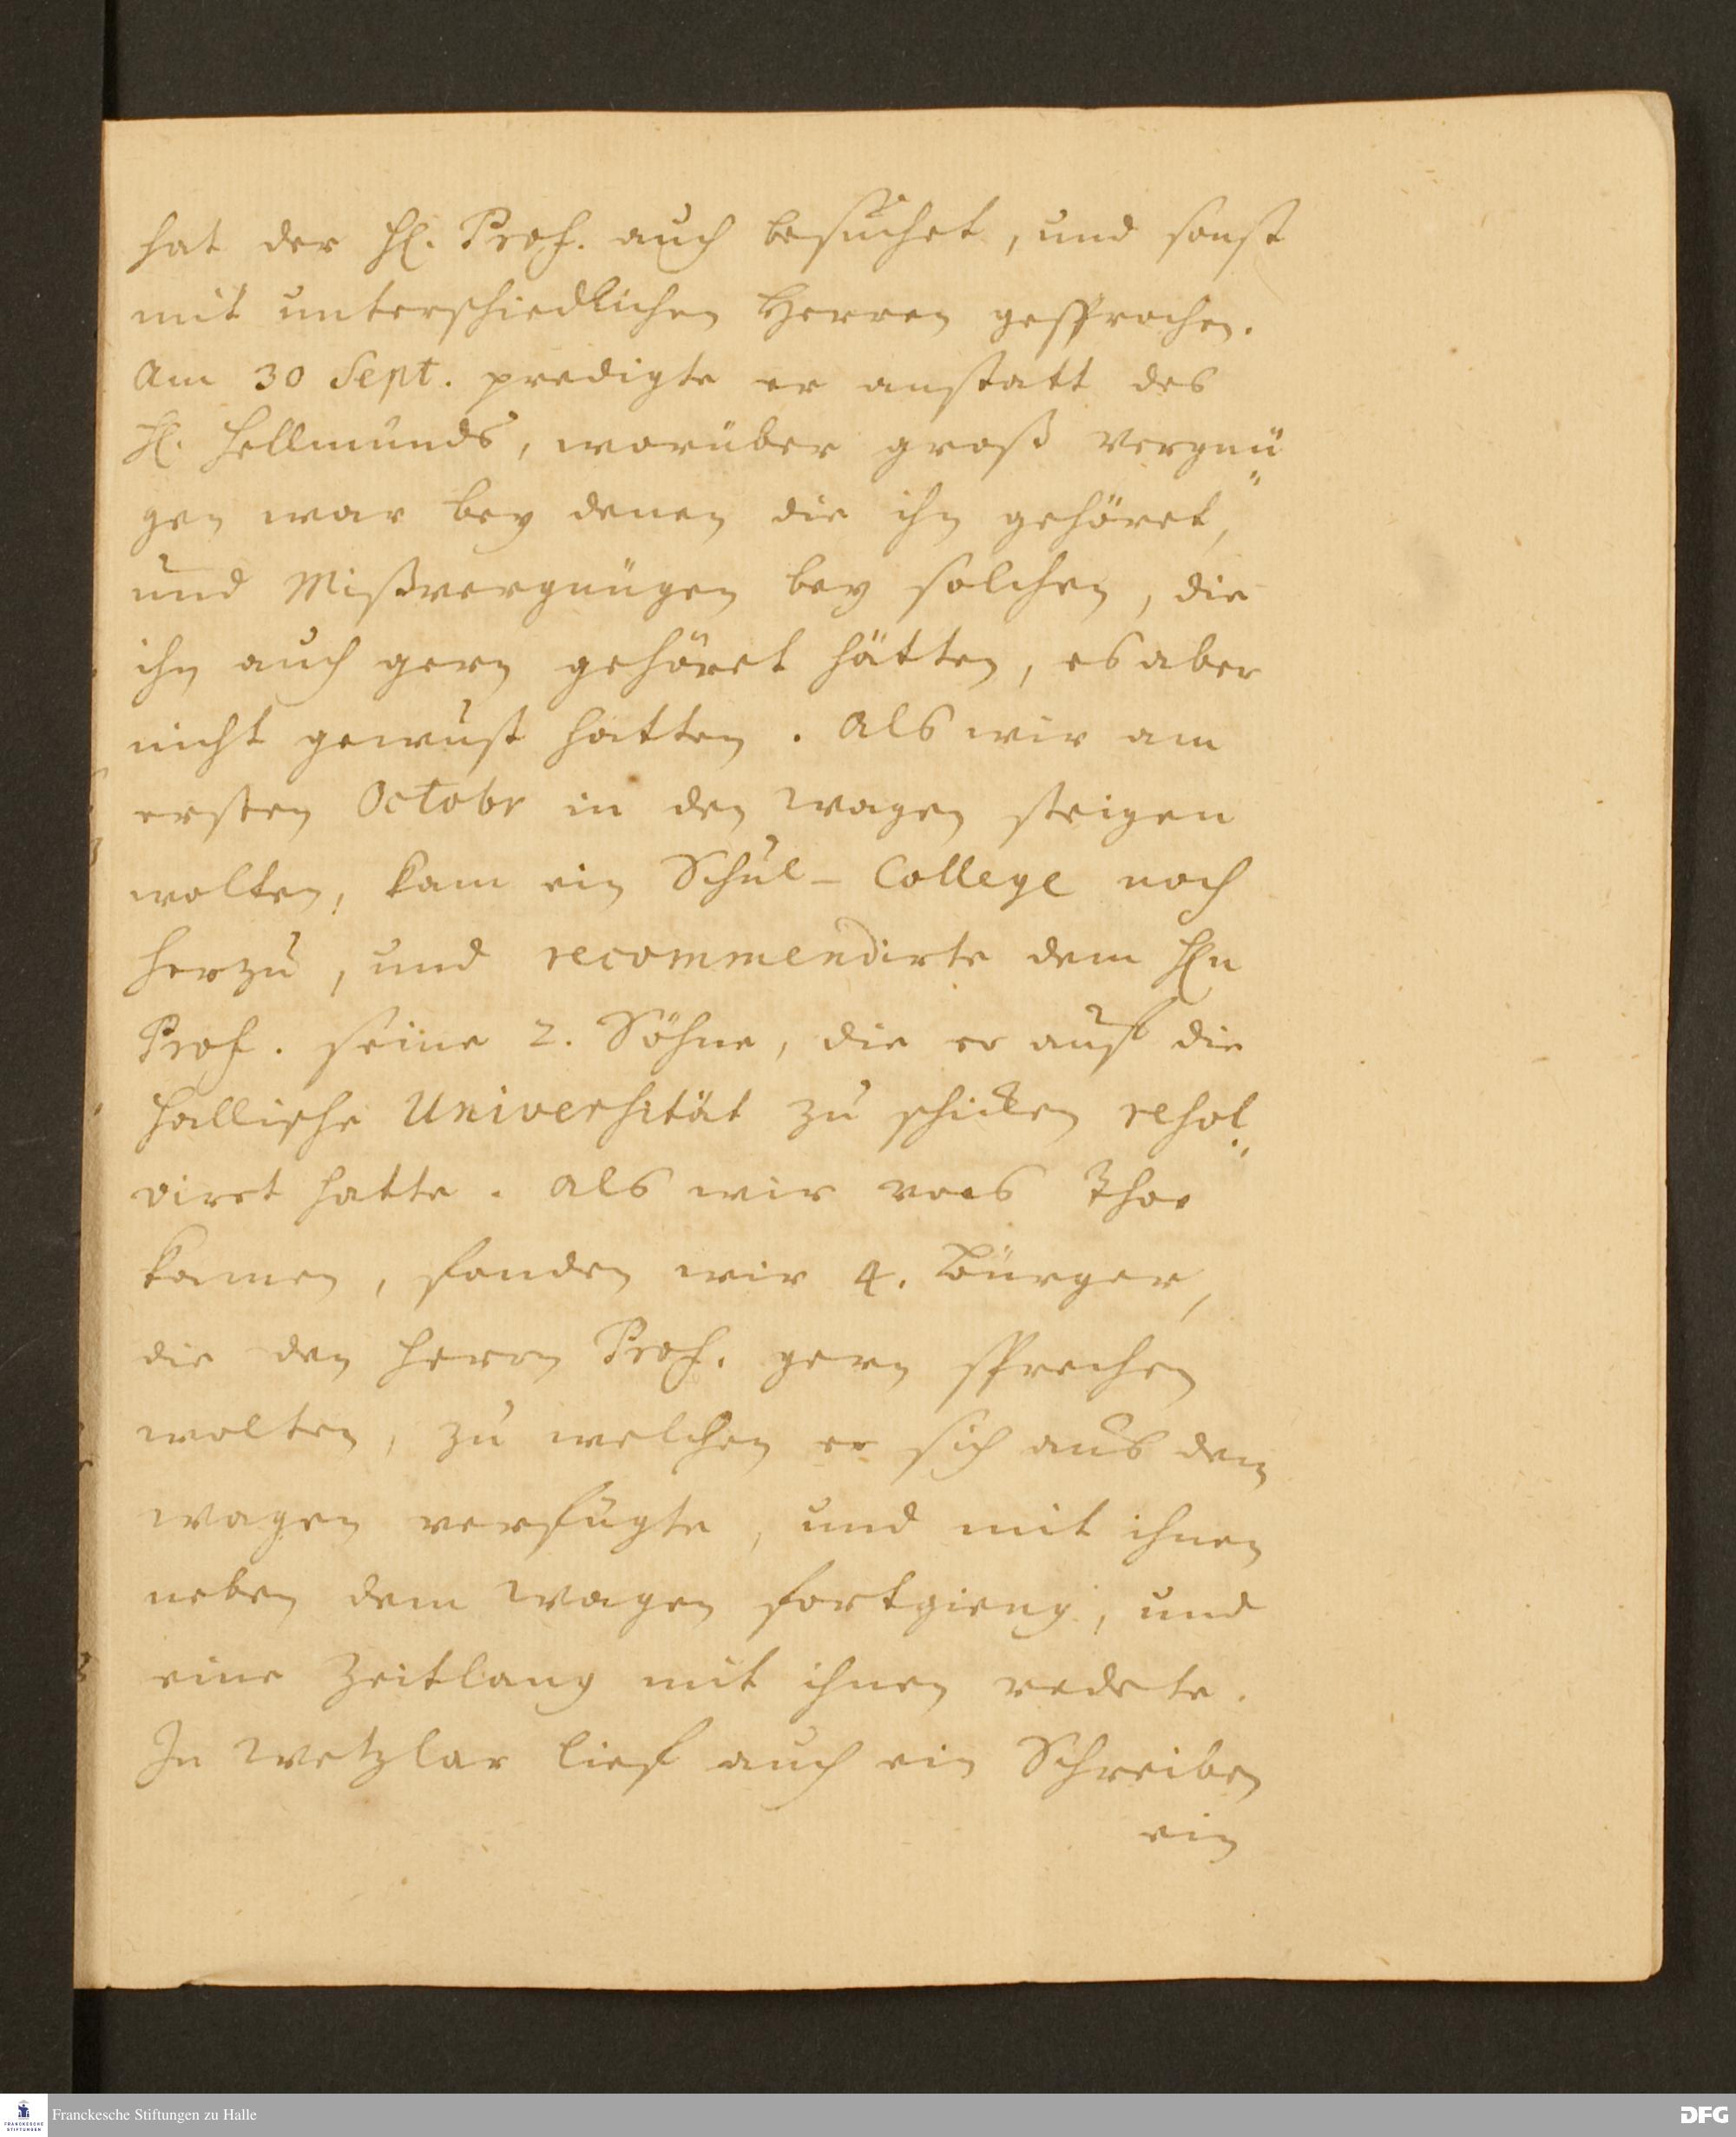 hat der H. Prof. auch besuchet, und sonst
mit unterschiedlichen Herren gesprochen.
Am 30 Sept. predigte er anstatt des
H. Hellmunds, worüber groß Vergnü„
gen war bey denen die ihn gehöret,
und Mißvergnügen bey solchen, die
ihn auch gern gehöret hätten, es aber
nicht gewust hatten. Als wir am
ersten Octobr in den Wagen steigen
wolten, kam ein Schul-College noch
herzu, und recommendirte dem Hn
Prof. seine 2. Söhne, die er auf die
Hallische Universität zu schicken resol„
viret hatte. Als wir vors Thor
kamen, fanden wir 4. Bürger,
die den Herrn Prof. gern sprechen
wolten, zu welchen er sich aus dem
Wagen verfügte, und mit ihnen
neben dem Wagen fortgieng, und
eine Zeitlang mit ihnen redete.
In Wetzlar lief auch ein Schreiben
ein
Franckesche Stiftungen zu Halle
FRANCKESCHE STIFTUNGEN
DFG